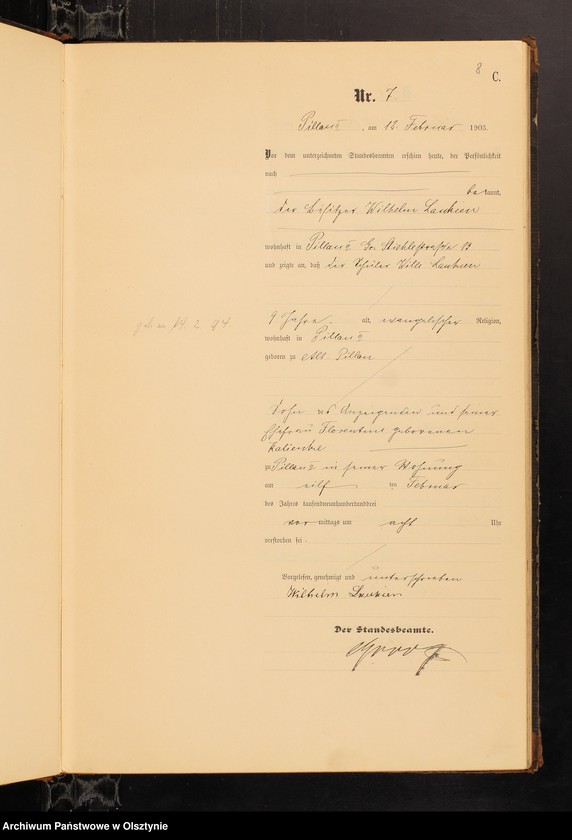 8
C.
Nr. 7
Pillau II, am 12. Februar 1903.
Vor dem unterzeichneten Standesbeamten erschien heute, der Persönlichkeit
nach
bekannt,
der Besitzer Wilhelm Laukien
wohnhaft in Pillau II Gr. Stiehlestraße 13
und zeigte an, daß der Schüler Willi Laukien
geb. am 14. 2. 94
9 Jahre alt, evangelischer Religion,
wohnhaft in Pillau II
geboren zu Alt Pillau
Sohn des Anzeigenden und seiner
Ehefrau Florentine geborenen
zu Pillau II in seiner Wohnung
am elf ten Februar
des Jahres tausendneunhundertunddrei
vor mittags um acht Uhr
verstorben sei
Vorgelesen, genehmigt und unterschrieben
Wilhelm Laukien
Der Standesbeamte.
Archiwum Państwowe w Olsztynie